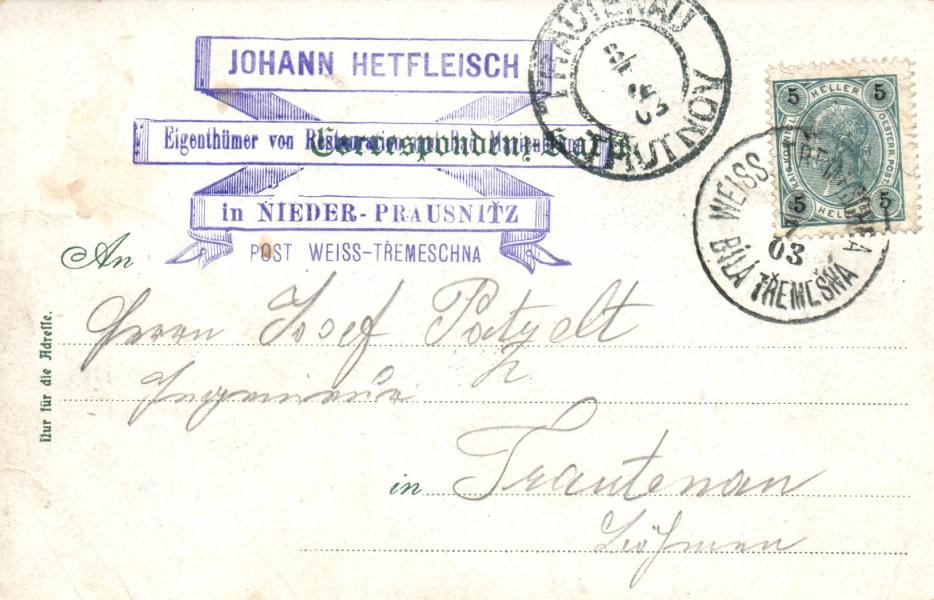 JOHANN HETFLEISCH
Eigenthümer von Restauration und Bad
Correspondenz-Karte
in NIEDER-PRAUSNITZ
POST WEISS-TŘEMESCHNA
TRAUTENAU
03
TRUTNOV
5 HELLER 5
5 HELLER 5
WEISS
03
BÍLÁ TŘEMEŠNÁ
An
Herrn Josef Patzelt
Ingenieur
in Trautenau
Böhmen
Nur für die Adresse.